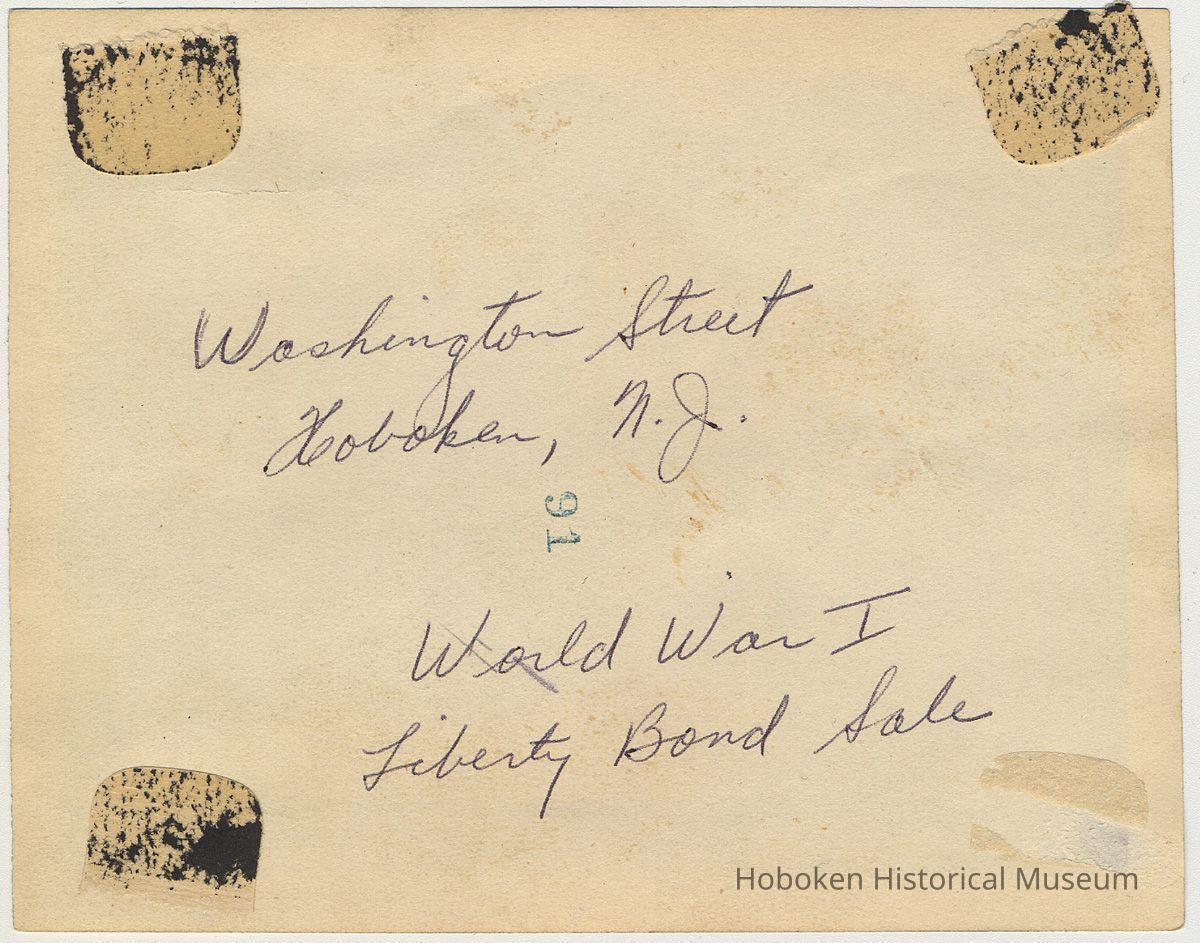 Washington Street
Hoboken, N.J.
91
World War I
Liberty Bond Sale
Hoboken Historical Museum